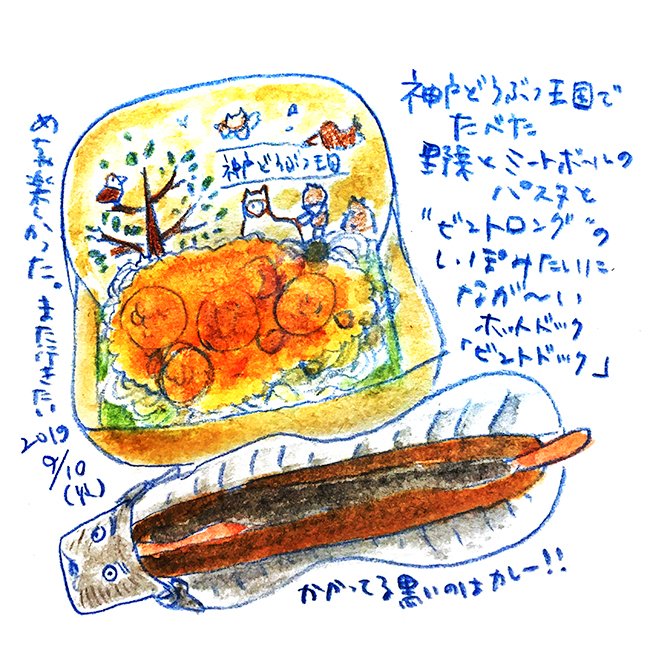 神戸どうぶつ王国で
たべた
野菜とミートボールの
パスタと
"ビントロング"の
しっぽみたいに
なが〜い
ホットドック
「ビントドック」
神戸どうぶつ王国
めちゃ楽しかった。また行きたい
2019
9/10
(火)
かかってる黒いのはカレー!!